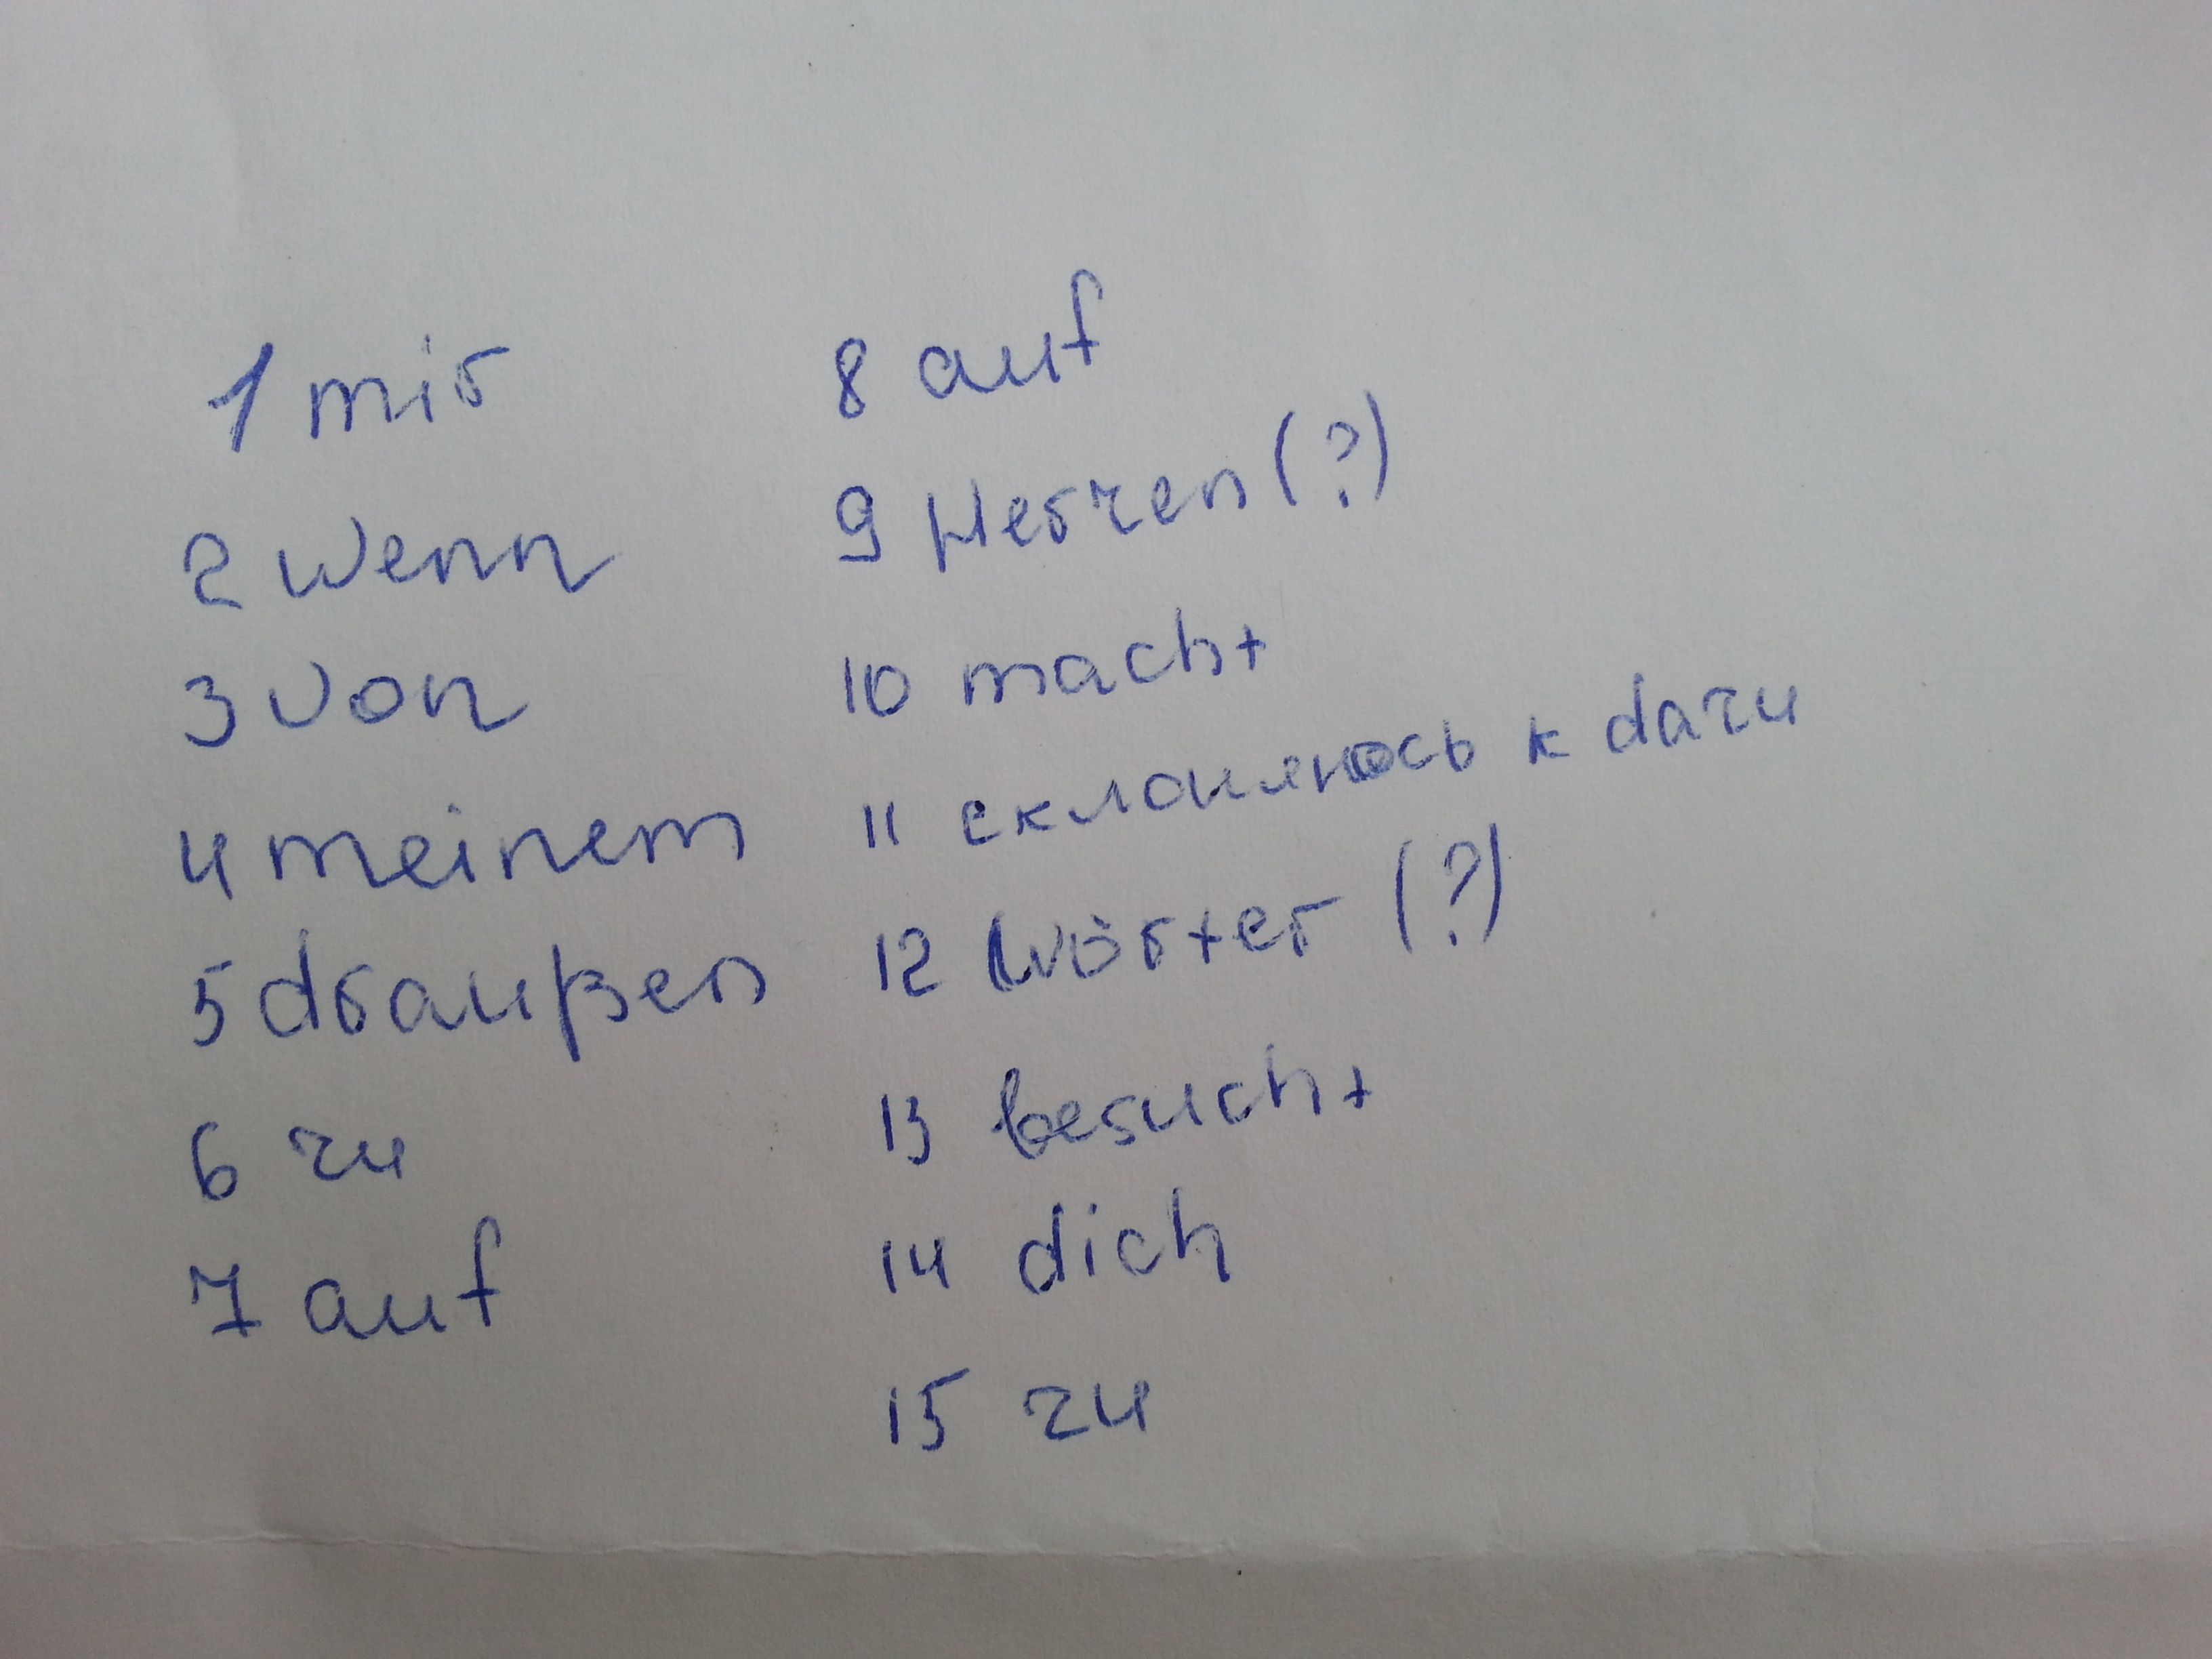 1 mir
2 wenn
3 von
4 meinem
5 draußen
6 zu
7 auf
8 auf
9 Herren (?)
10 macht
11 склоняюсь к dazu
12 Wörter (?)
13 besucht
14 dich
15 zu